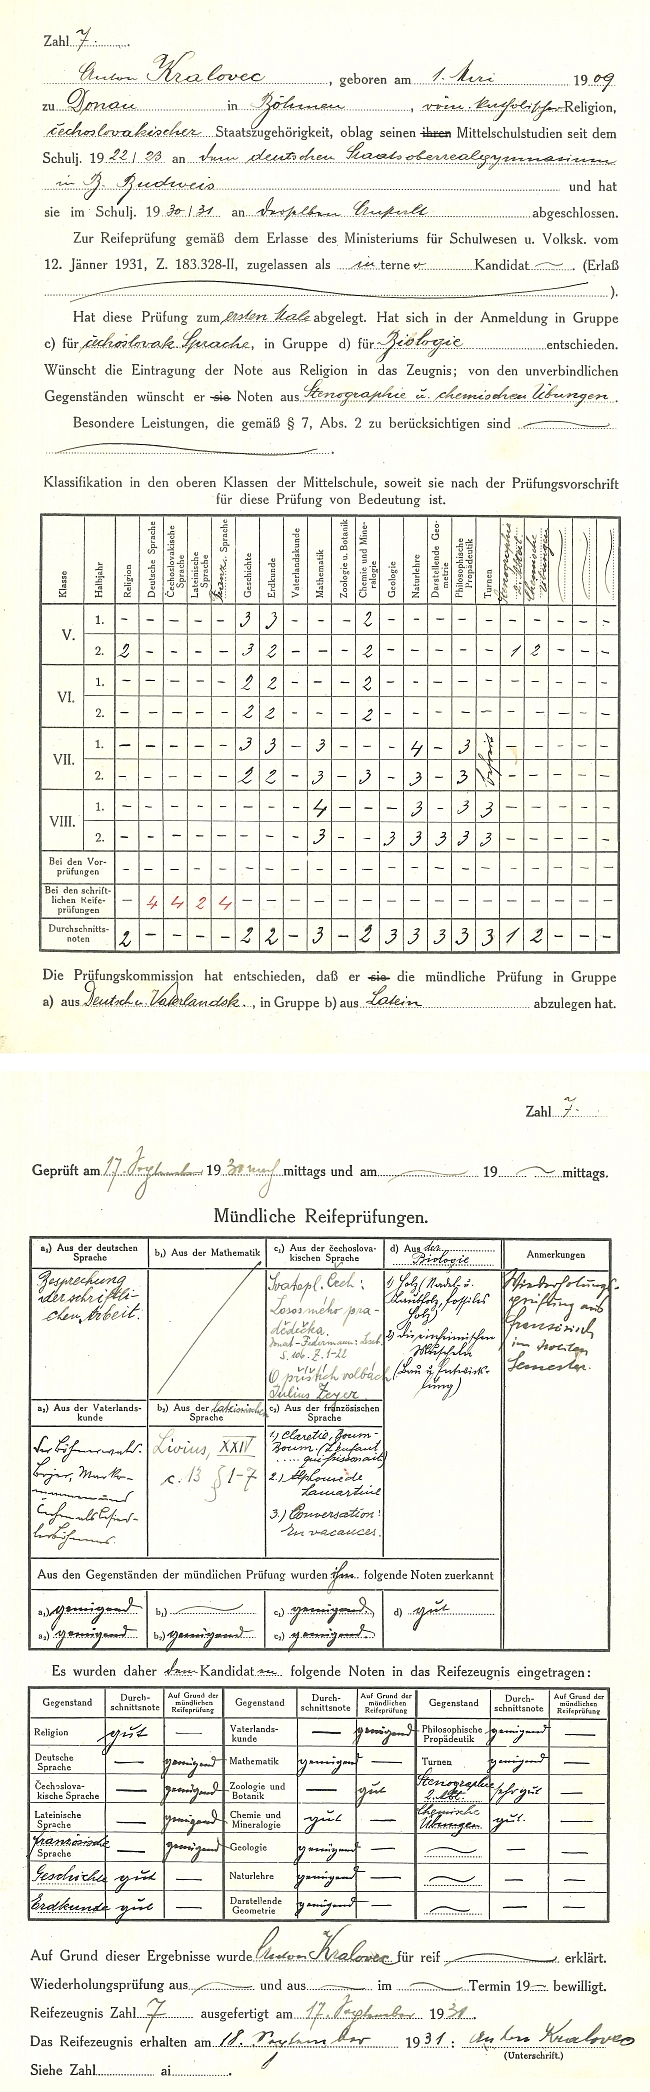 Zahl 7.
Anton Kralovec, geboren am 1. Mai 1909
zu Donau in Böhmen, röm. katholischer Religion,
čechoslovakischer Staatszugehörigkeit, oblag seinen ihren Mittelschulstudien seit dem
Schulj. 1922/23 an dem deutschen Staatsoberrealgymnasium
in B. Budweis und hat
sie im Schulj. 1930/31 an derselben Anstalt abgeschlossen.
Zur Reifeprüfung gemäß dem Erlasse des Ministeriums für Schulwesen u. Volksk. vom
12. Jänner 1931, Z. 183.328-II, zugelassen als interner Kandidat (Erlaß
).
Hat diese Prüfung zum ersten Male abgelegt. Hat sich in der Anmeldung in Gruppe
c) für čechoslovak. Sprache, in Gruppe d) für Biologie entschieden.
Wünscht die Eintragung der Note aus Religion in das Zeugnis; von den unverbindlichen
Gegenständen wünscht er sie Noten aus Stenographie u. chemischen Übungen.
Besondere Leistungen, die gemäß § 7, Abs. 2 zu berücksichtigen sind
.
Klassifikation in den oberen Klassen der Mittelschule, soweit sie nach der Prüfungsvorschrift
für diese Prüfung von Bedeutung ist.
Klasse Halbjahr Religion Deutsche Sprache Čechoslovakische Sprache Lateinische Sprache Franz. Sprache Geschichte Erdkunde Vaterlandskunde Mathematik Zoologie u. Botanik Chemie und Mineralogie Geologie Naturlehre Darstellende Geometrie Philosophische Propädeutik Turnen Stenographie 2. Abteil. Chemische Übungen
V. 1. – – – – – 3 3 – – – 2 – – – – – – – – – –
2. 2 – – – – 3 2 – – – 2 – – – – – 1 2 – – –
VI. 1. – – – – – 2 2 – – – 2 – – – – – – – – – –
2. – – – – – 2 2 – – – 2 – – – – – – – – – –
VII. 1. – – – – – 3 3 – 3 – – – 4 – 3 befreit – – – – –
2. – – – – – 2 2 – 3 – 3 – 3 – 3 – – – – –
VIII. 1. – – – – – – – – 4 – – – 3 – 3 3 – – – – –
2. – – – – – – – – 3 – – 3 3 3 3 3 – – – – –
Bei den Vorprüfungen – – – – – – – – – – – – – – – – – – – – –
Bei den schriftlichen Reifeprüfungen – 4 4 2 4 – – – – – – – – – – – – – – – –
Durchschnittsnoten 2 – – – – 2 2 – 3 – 2 3 3 3 3 3 1 2 – – –
Die Prüfungskommission hat entschieden, daß er sie die mündliche Prüfung in Gruppe
a) aus Deutsch u. Vaterlandsk., in Gruppe b) aus Latein abzulegen hat.
Zahl 7.
Geprüft am 17. September 19 mittags und am 19 mittags.
Mündliche Reifeprüfungen.
a₁) Aus der deutschen Sprache
b₁) Aus der Mathematik
c₁) Aus der čechoslovakischen Sprache
d) Aus der Biologie
Anmerkungen
Besprechung
der schriftli-
chen Arbeit.
Svatopl. Čech:
dědečka.
S. 106. Z. 1-22
O příštích volbách
Julius Zeyer.
1) Holz (Nadel- u.
Laubholz, fossiles
Holz)
2) die einheimischen
Muscheln
(Bau u. Entwick-
lung)
Wiederholungs-
prüfung aus
französisch
im zweiten
Semester.
a₂) Aus der Vaterlandskunde
b₂) Aus der lateinischen Sprache
c₂) Aus der französischen Sprache
Der Böhmerwald.
Livius, XXIV
c. 13 § 1-7
1.) Claretie, Boum-
Boum. (L'enfant
2.) Alphonse de
Lamartine
3.) Conversation:
En vacances.
Aus den Gegenständen der mündlichen Prüfung wurden ihm folgende Noten zuerkannt
a₁) genügend b₁) c₁) genügend. d) gut
a₂) genügend b₂) genügend c₂) genügend.
Es wurden daher dem Kandidaten folgende Noten in das Reifezeugnis eingetragen:
Gegenstand Durchschnittsnote Auf Grund der mündlichen Reifeprüfung Gegenstand Durchschnittsnote Auf Grund der mündlichen Reifeprüfung Gegenstand Durchschnittsnote Auf Grund der mündlichen Reifeprüfung
Religion gut — Vaterlandskunde — genügend Philosophische Propädeutik genügend —
Deutsche Sprache — genügend Mathematik genügend — Turnen genügend —
Čechoslovakische Sprache — genügend Zoologie und Botanik — gut Stenographie 2. Abt. sehr gut —
Lateinische Sprache — genügend Chemie und Mineralogie gut — Chemische Übungen gut. —
französische Sprache — genügend Geologie genügend — — —
Geschichte gut — Naturlehre genügend — — —
Erdkunde gut — Darstellende Geometrie genügend — — —
Auf Grund dieser Ergebnisse wurde Anton Kralovec für reif erklärt.
Wiederholungsprüfung aus und aus im Termin 19— bewilligt.
Reifezeugnis Zahl 7 ausgefertigt am 17. September 1931.
Das Reifezeugnis erhalten am 18. September 1931: Anton Kralovec
(Unterschrift.)
Siehe Zahl ai .